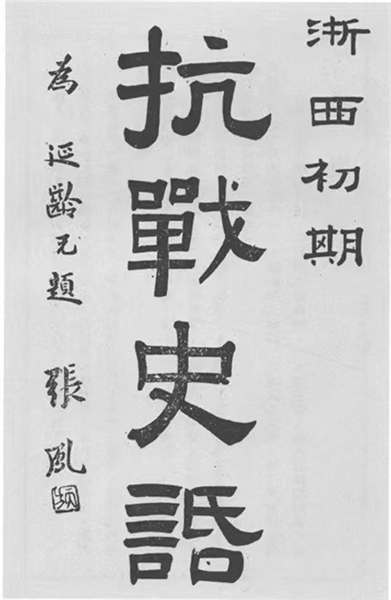 浙西初期
抗戰史諙
為 延齡兄題 張鳳